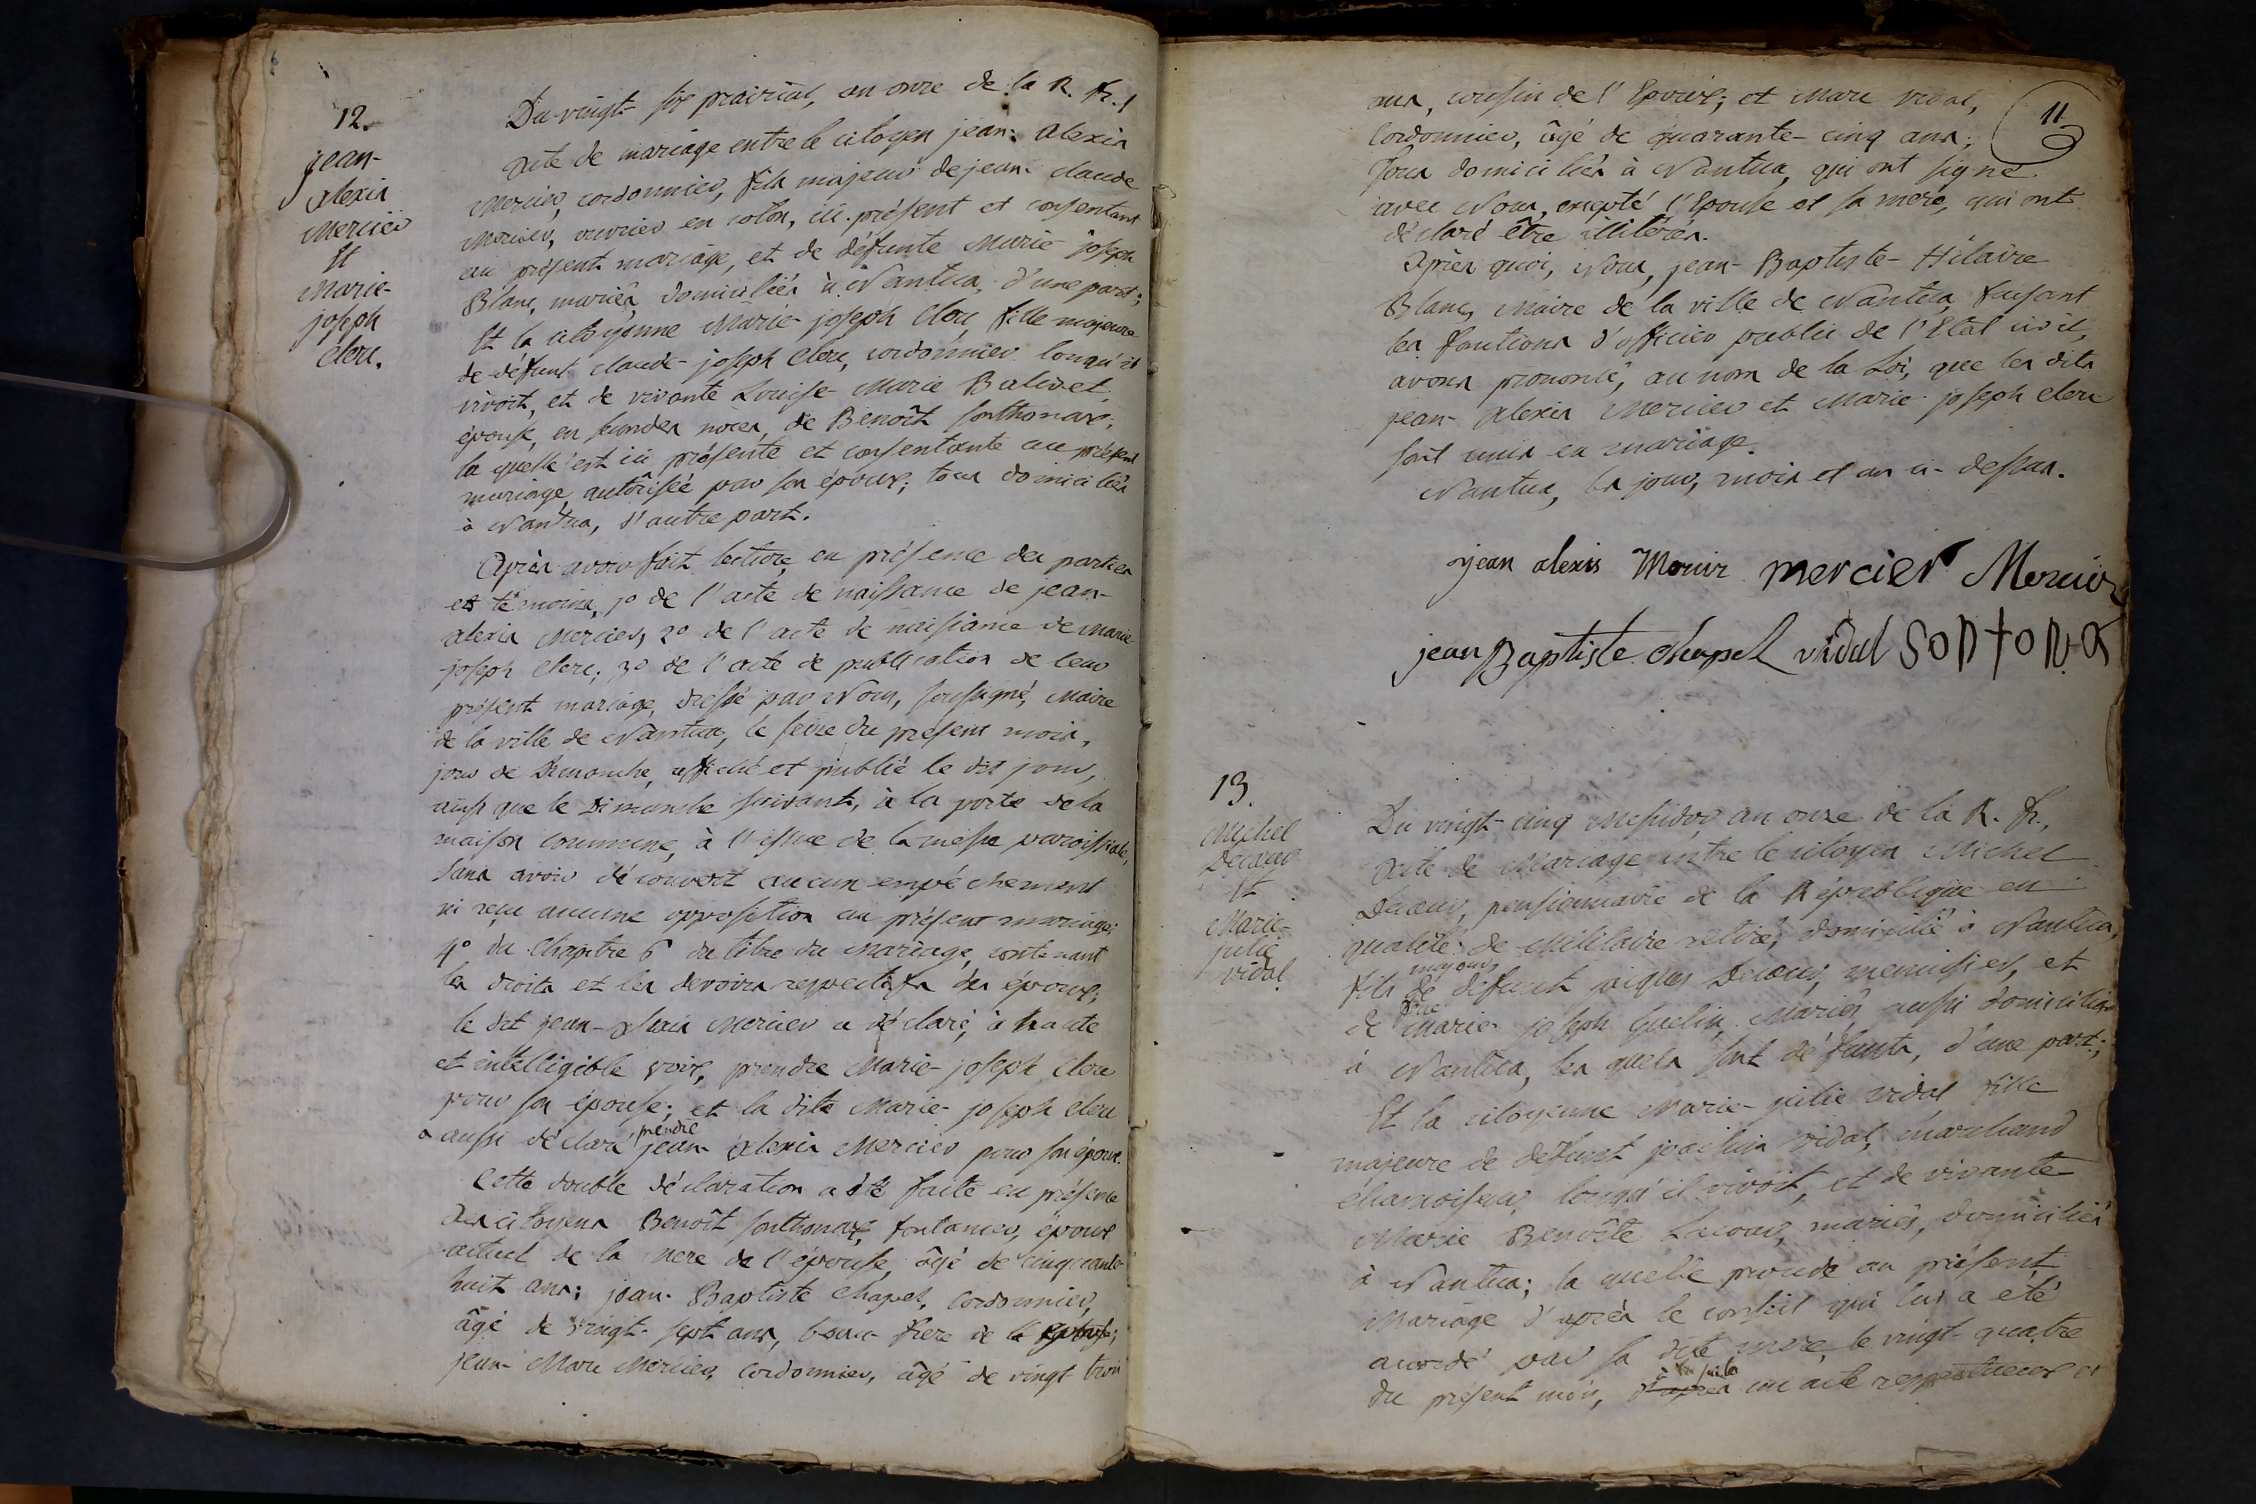 12.
jean-
alexis
Mercier
Et
Marie-
joseph
Clerc.
Du vingt-six prairial, an onze de la R. fr.,
Acte de mariage entre le citoyen jean-alexis
Mercier, cordonnier, fils majeur de jean-claude
Mercier, ouvrier en coton, ici présent et consentant
au présent mariage, et de défunte Marie-joseph
Blanc, mariés, domiciliés à Nantua, d'une part;
Et la citoyenne Marie-joseph Clerc, fille majeure
de défunt claude-joseph Clerc, cordonnier lorsqu'il
vivoit, et de vivante Louise-Marie Balivet,
épouse, en secondes noces, de Benoît Sonthonax,
la quelle est ici présente et consentante au présent
mariage, autôrisée par son époux; tous domiciliés
à Nantua, d'autre part.
Après avoir fait lecture, en présence des parties
et témoins, 1° de l'acte de naissance de jean-
alexis Mercier, 2° de l'acte de naissance de Marie
joseph Clerc; 3° de l'acte de publication de leur
présent mariage, dressé par Nous, soussigné, Maire
de la ville de Nantua, le seize du présent mois,
jour de Dimanche, affiché et publié le dit jour,
ainsi que le Dimanche suivant, à la porte de la
maison commune, à l'issue de la messe paroissiale,
sans avoir découvert aucun empêchement
ni reçu aucune opposition au présent mariage;
4° du Chapitre 6 du titre du Mariage, contenant
les droits et les devoirs respectifs des époux;
le dit jean-alexis Mercier a déclaré, à haute
et intelligible voix, prendre Marie-joseph Clerc
pour son épouse; et la dite Marie-joseph Clerc
a aussi déclaré prendre jean-alexis Mercier pour son époux.
Cette double déclaration a été faite en présence
des citoyens Benoît Sonthonax, fontanier, époux
actuel de la mere de l'épouse, âgé de cinquante
huit ans; jean-Baptiste Chapel, cordonnier,
âgé de vingt-sept ans, beau-frere de l'épouse;
jean-Marc Mercier, cordonnier, âgé de vingt trois
11
ans, cousin de l'Epoux; et Marc Vidal,
Cordonnier, âgé de quarante-cinq ans;
Tous domiciliés à Nantua, qui ont signé
avec Nous, excepté l'Epouse et sa mere, qui ont
déclaré être illitérés.
Après quoi, Nous, jean-Baptiste-Hilaire
Blanc, Maire de la ville de Nantua, faisant
les fonctions d'officier public de l'Etat civil,
avons prononcé, au nom de la Loi, que les dits
jean-alexis Mercier et Marie-joseph Clerc
sont unis en mariage.
Nantua, les jour, mois et an ci-dessus.
jean alexis Mercier mercier Mercier
jean Baptiste chapel vidal SONTONAX
13.
Michel
Decoeur
Et
Marie-
julie
vidal
Du vingt-cinq Messidor an onze de la R. fr.,
Acte de Mariage entre le citoyen Michel
Decoeur, pensionnaire de la République en
qualité de militaire retiré, domicilié à Nantua,
fils majeur de défunt Decoeur, menuisier, et
de Marie-joseph Guelin, Mariés, aussi domiciliés
à Nantua, les quels sont défunts, d'une part;
Et la citoyenne Marie-julie vidal fille
majeure de défunt joachim vidal, marchand
chamoiseur, lorsqu'il vivoit, et de vivante
Marie Benoîte Lacour, mariés, domiciliés
à Nantua; la quelle procede au présent
Mariage d'après le conseil qui lui a été
accordé par sa dite mere, le vingt-quatre
du présent mois, à la suite un acte respectueux et